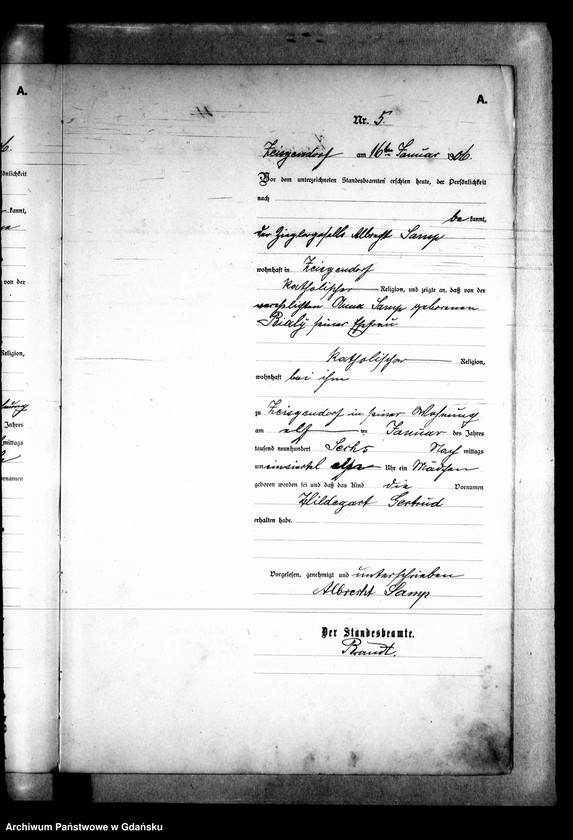 A.
A.
Nr. 5.
Zeisgendorf am 16ten Januar 1906.
Vor dem unterzeichneten Standesbeamten erschien heute, der Persönlichkeit
nach
be kannt,
der Zieglergeselle Albrecht Samp
wohnhaft in Zeisgendorf
katholischer Religion, und zeigte an, daß von der
verehelichten Anna Samp geborenen
Bialy seiner Ehefrau
katholischer Religion,
wohnhaft bei ihm
zu Zeisgendorf in seiner Wohnung
am elf ten Januar des Jahres
tausend neunhundert Sechs Nach mittags
um einviertel Uhr ein Mädchen
geboren worden sei und daß das Kind die Vornamen
Hildegart Gertrud
erhalten habe.
Vorgelesen, genehmigt und unterschrieben
Albrecht Samp
Der Standesbeamte.
Brandt.
Archiwum Państwowe w Gdańsku